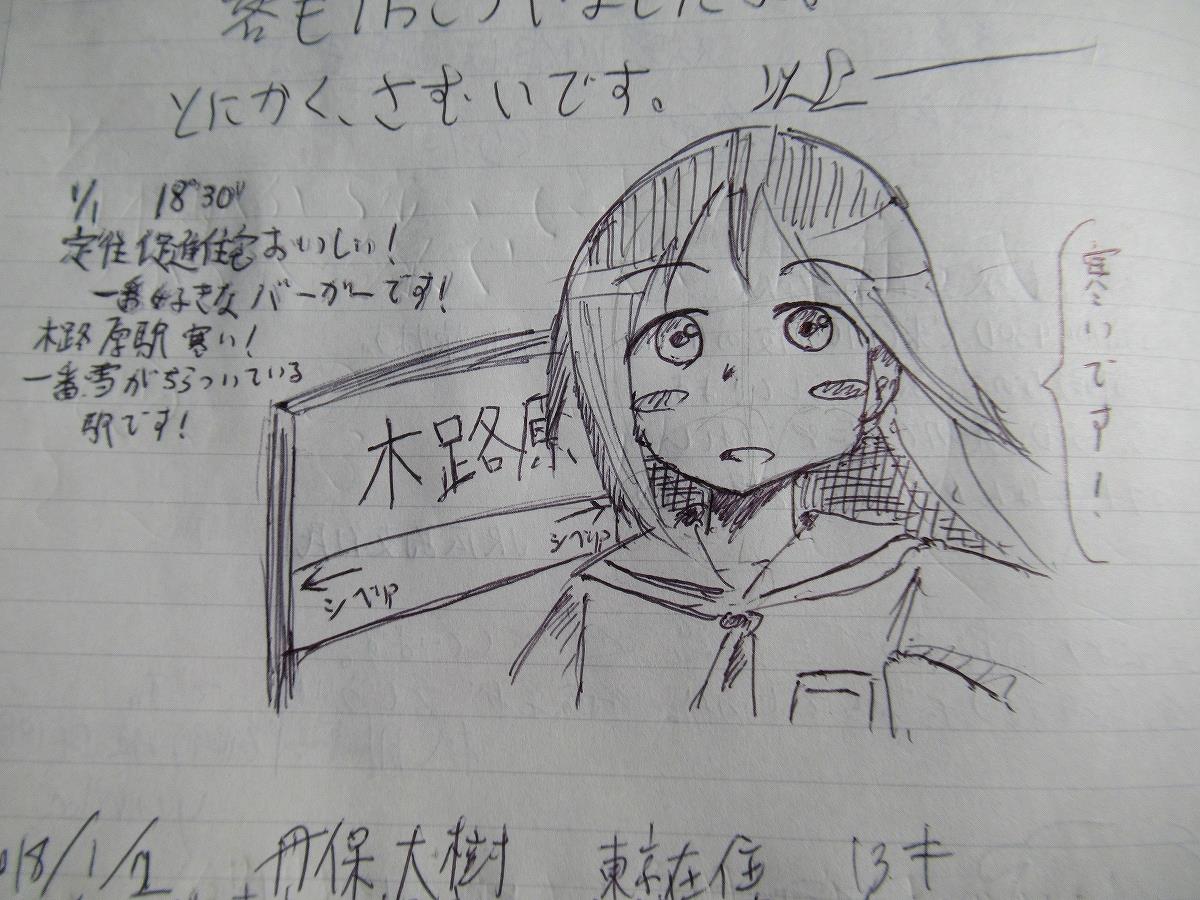 客も
とにかく、さむいです。 以上
1/1 18°30"
定住促進住宅おいしい!
一番好きなバーガーです!
木路原駅寒い!
一番雪がちらついている
駅です!
木路原
シベリア
シベリア
寒いですー
018/1/2 丹保大樹 東京在住 13才